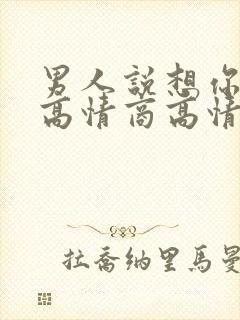 男人説想你
高情商高情
拉喬納里馬曼